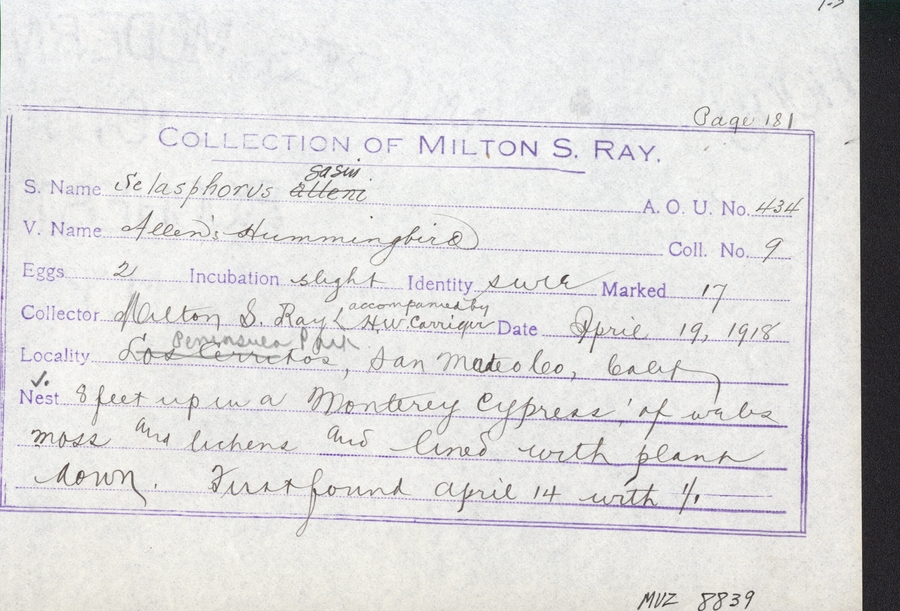 Page 181
COLLECTION OF MILTON S. RAY.
sasin
S. Name Selasphorus alleni A. O. U. No. 434
V. Name Allen's Hummingbird Coll. No. 9
Eggs 2 Incubation slight Identity sure Marked 17
accompanied by
Collector Milton S. Ray ( H.W. Carriger Date April 19, 1918
Peninsula Park
Locality Los Cerritos, San Mateo Co, Calif
Nest 8 feet up in a Monterey Cypress, of webs
moss and lichens and lined with plant
down. First found April 14 with 1/.
MVZ 8839